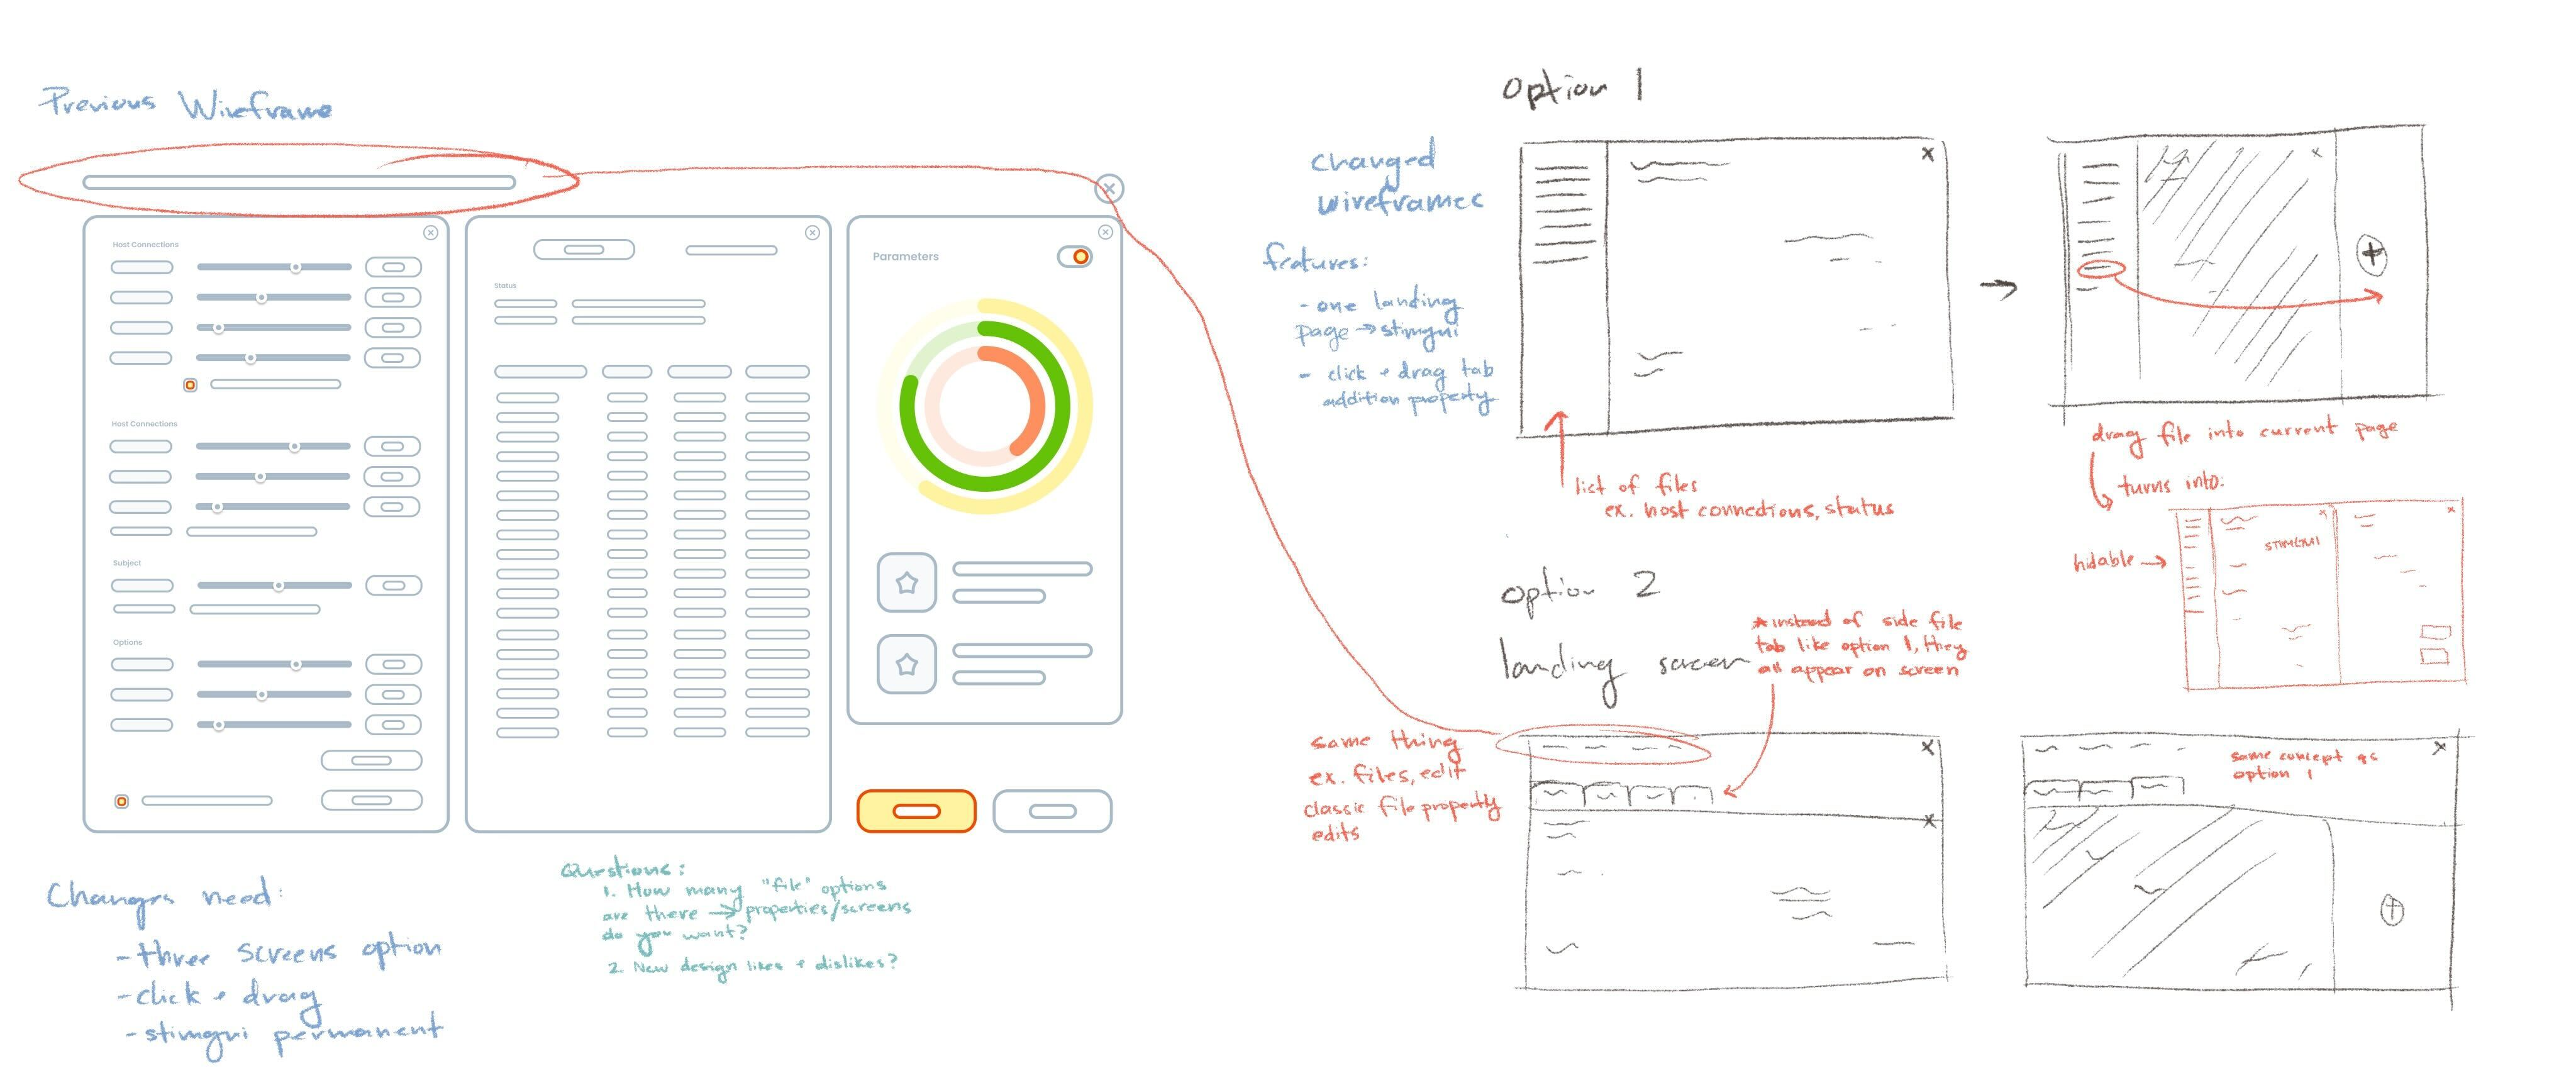 Previous Wireframe
Host Connections
Host Connections
Subject
Options
Status
Parameters
Changes need:
-three screens option
-click + drag
-stimgui permanent
Questions:
1. How many "file" options
are there → properties/screens
do you want?
2. New design likes + dislikes?
changed
wireframes
features:
-one landing
page → stimgui
- click + drag tab
addition property
Option 1
x
list of files
ex. host connections, status
→
x
+
drag file into current page
turns into:
hidable →
STIMGUI
x
x
option 2
landing screen
*instead of side file
tab like option 1, they
all appear on screen
same thing
ex. files, edit
classic file property
edits
x
x
same concept as
option 1
x
+